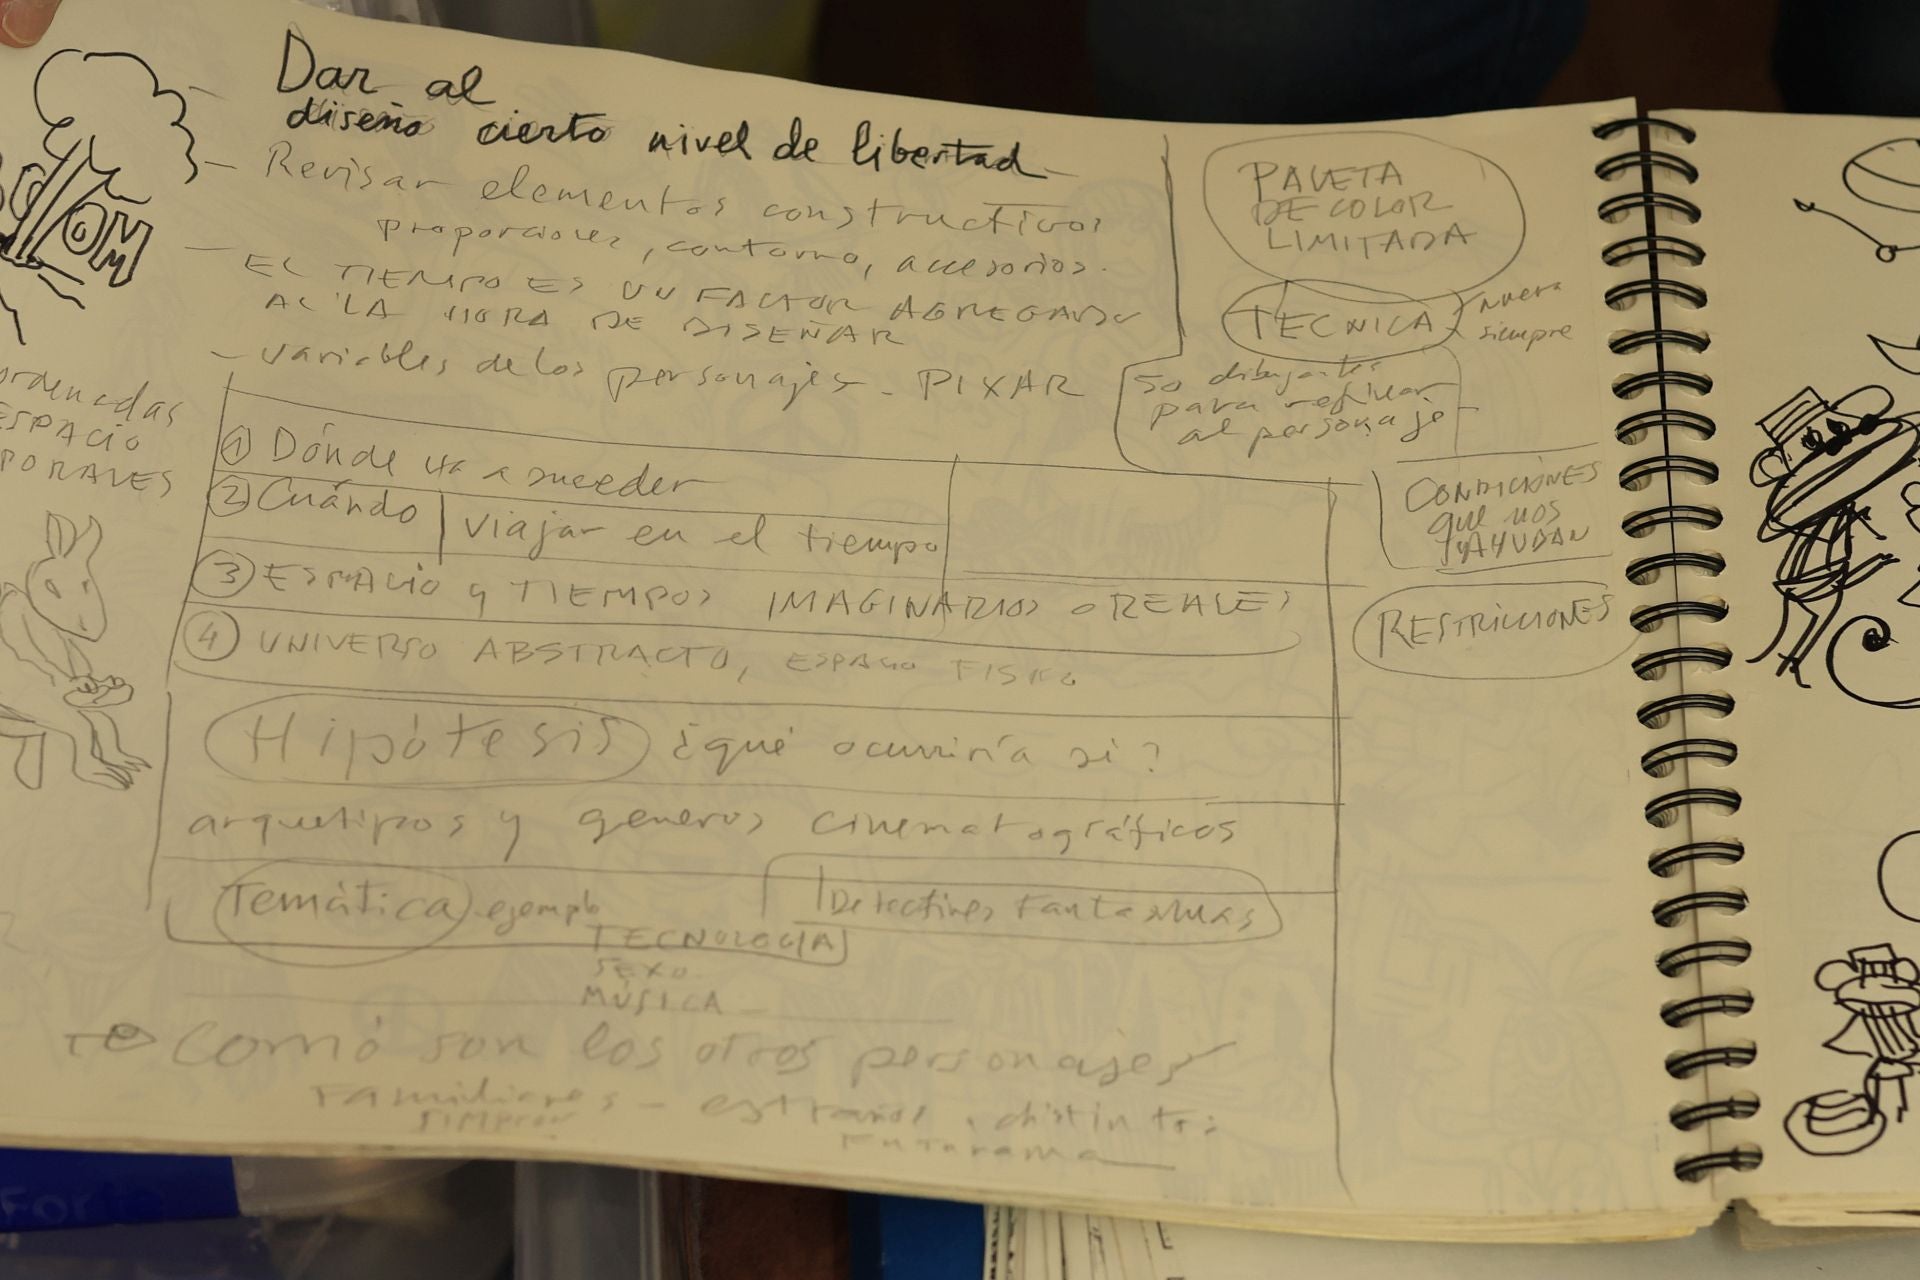 Dar al
diseño cierto nivel de libertad
Revisar elementos constructivos
proporciones, contorno, accesorios.
EL TIEMPO ES UN FACTOR AGREGADO
A LA HORA DE DISEÑAR
- variables de los personajes - PIXAR
① Dónde va a suceder
② Cuándo | viajar en el tiempo
③ ESPACIO y TIEMPOS IMAGINARIOS o REALES
④ UNIVERSO ABSTRACTO, ESPACIO FISICO
Hipótesis ¿qué ocurriría si?
arquetipos y generos cinematográficos
Temática ejemplo
TECNOLOGÍA
SEXO
MÚSICA
Detectives Fantasmas
Comó son los otros personajes
Familiares - extraños, distintos
SIMPSON
Futurama
PALETA
DE COLOR
LIMITADA
TECNICA
nueva
siempre
50 dibujantes
para refinar
al personaje
CONDICIONES
que nos
AYUDAN
RESTRICCIONES
OM
ordenadas
ESPACIO
PORALES
Forte